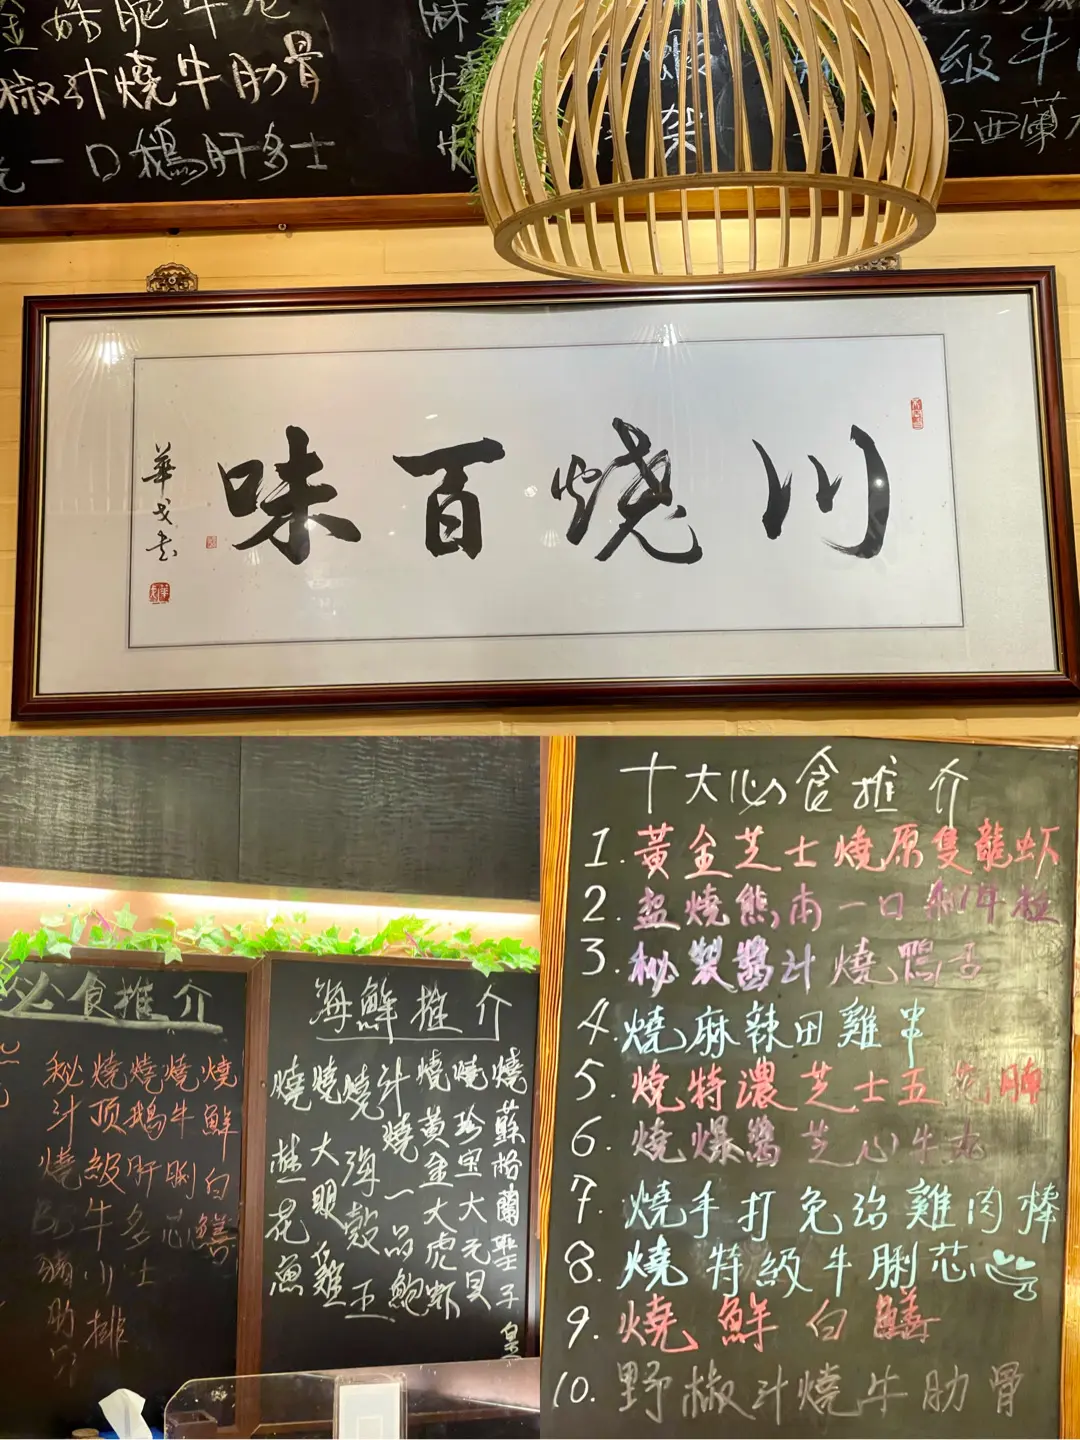 肥牛
椒汁燒牛肋骨
一口鵝肝多士
級牛
西蘭
川燒百味
十大必食推介
1. 黃金芝士燒原隻龍虾
2. 燒熊南一口和牛粒
3. 秘製醬汁燒鴨舌
4. 燒麻辣田雞串
5. 燒特濃芝士五花腩
6. 燒爆醬芝心牛丸
7. 燒手打免治雞肉棒
8. 燒特級牛脷芯
9. 燒鮮白鱔
10. 野椒汁燒牛肋骨
必食推介
燒鮮白鱔
燒牛脷芯
燒鵝肝多士
燒頂級牛小排
秘汁燒BB豬肋
海鮮推介
燒蘇格蘭聖子皇
燒珍宝大元貝
燒黃金大虎虾
汁燒一品鮑
燒海殼王
燒大眼雞
燒桂花魚